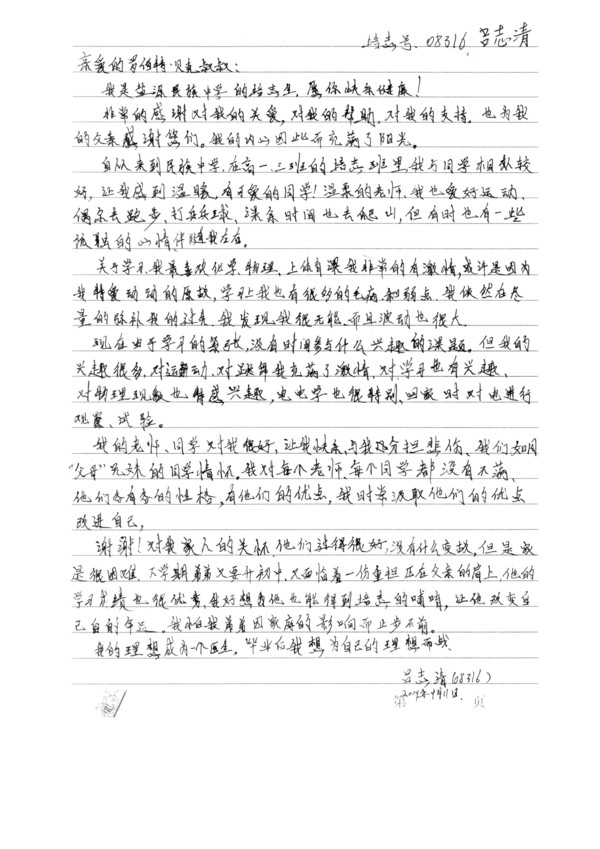 培志号. 08316. 吕志清
亲爱的罗伯特·贝克叔叔:
我是盐源民族中学的培志生, 愿你快乐健康!
非常的感谢对我的关爱, 对我的帮助, 对我的支持. 也为我
的父亲感谢您们。我的内心因此而充满了阳光。
自从来到民族中学, 在高一.三班的培志班里, 我与同学相处较
好, 让我感到温暖, 有可爱的同学! 温柔的老师. 我也爱好运动.
偶尔去跑步、打乒乓球、课余时间也去爬山, 但有时也有一些
孤独的心情伴随我左右。
关于学习, 我最喜欢化学、物理. 上体育课我非常的有激情, 或许是因为
我特爱动动的原故, 学习上我也有很多的毛病和弱点. 我依然在尽
量的弥补我的过失. 我发现我很无能. 而且波动也很大.
现在由于学习的紧张, 没有时间参与什么兴趣的课题. 但我的
兴趣很多, 对运动, 对跳舞我充满了激情, 对学习也有兴趣、
对物理现象也特感兴趣, 电学也很特别、回家时对电进行
观察、试验。
我的老师、同学对我很好, 让我快乐, 与我分担悲伤、我们如同
的同学情怀。我对每个老师、每个同学都没有不满、
他们各有各的性格, 有他们的优点, 我时常汲取他们的优点
改进自己,
谢谢! 对我家人的关怀. 他们过得很好, 没有什么变故, 但是家
是很困难. 下学期弟弟又要升初中. 又面临着一份重担压在父亲的肩上, 他的
学习成绩也很优秀, 我好想 他也能得到培志的哺哺, 让他改变自
己自的命运。我不怕我弟弟因家庭的影响而止步不前。
我的理想成为一个医生, 毕业后我想为自己的理想而战.
吕志清(08316)
2009年4月11日.
第 页